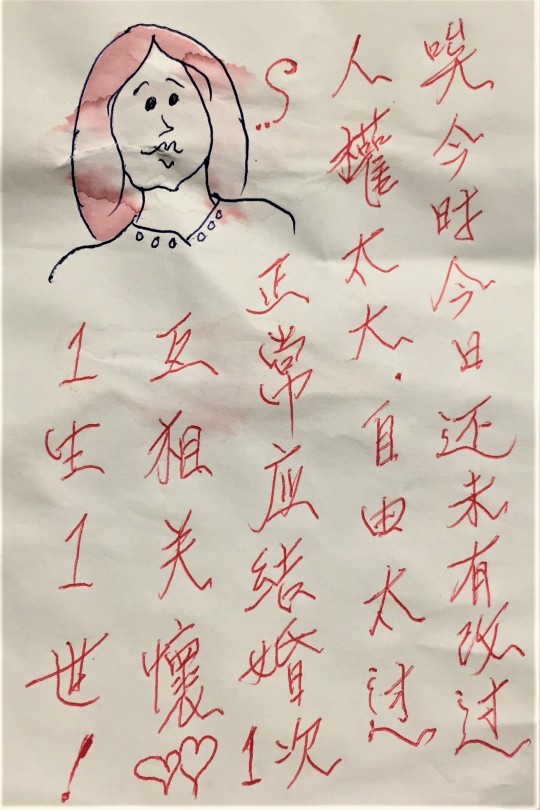 唉今时今日还未有改过
人權太大.自由太过
正常应结婚1次
互相关懷
1生1世!